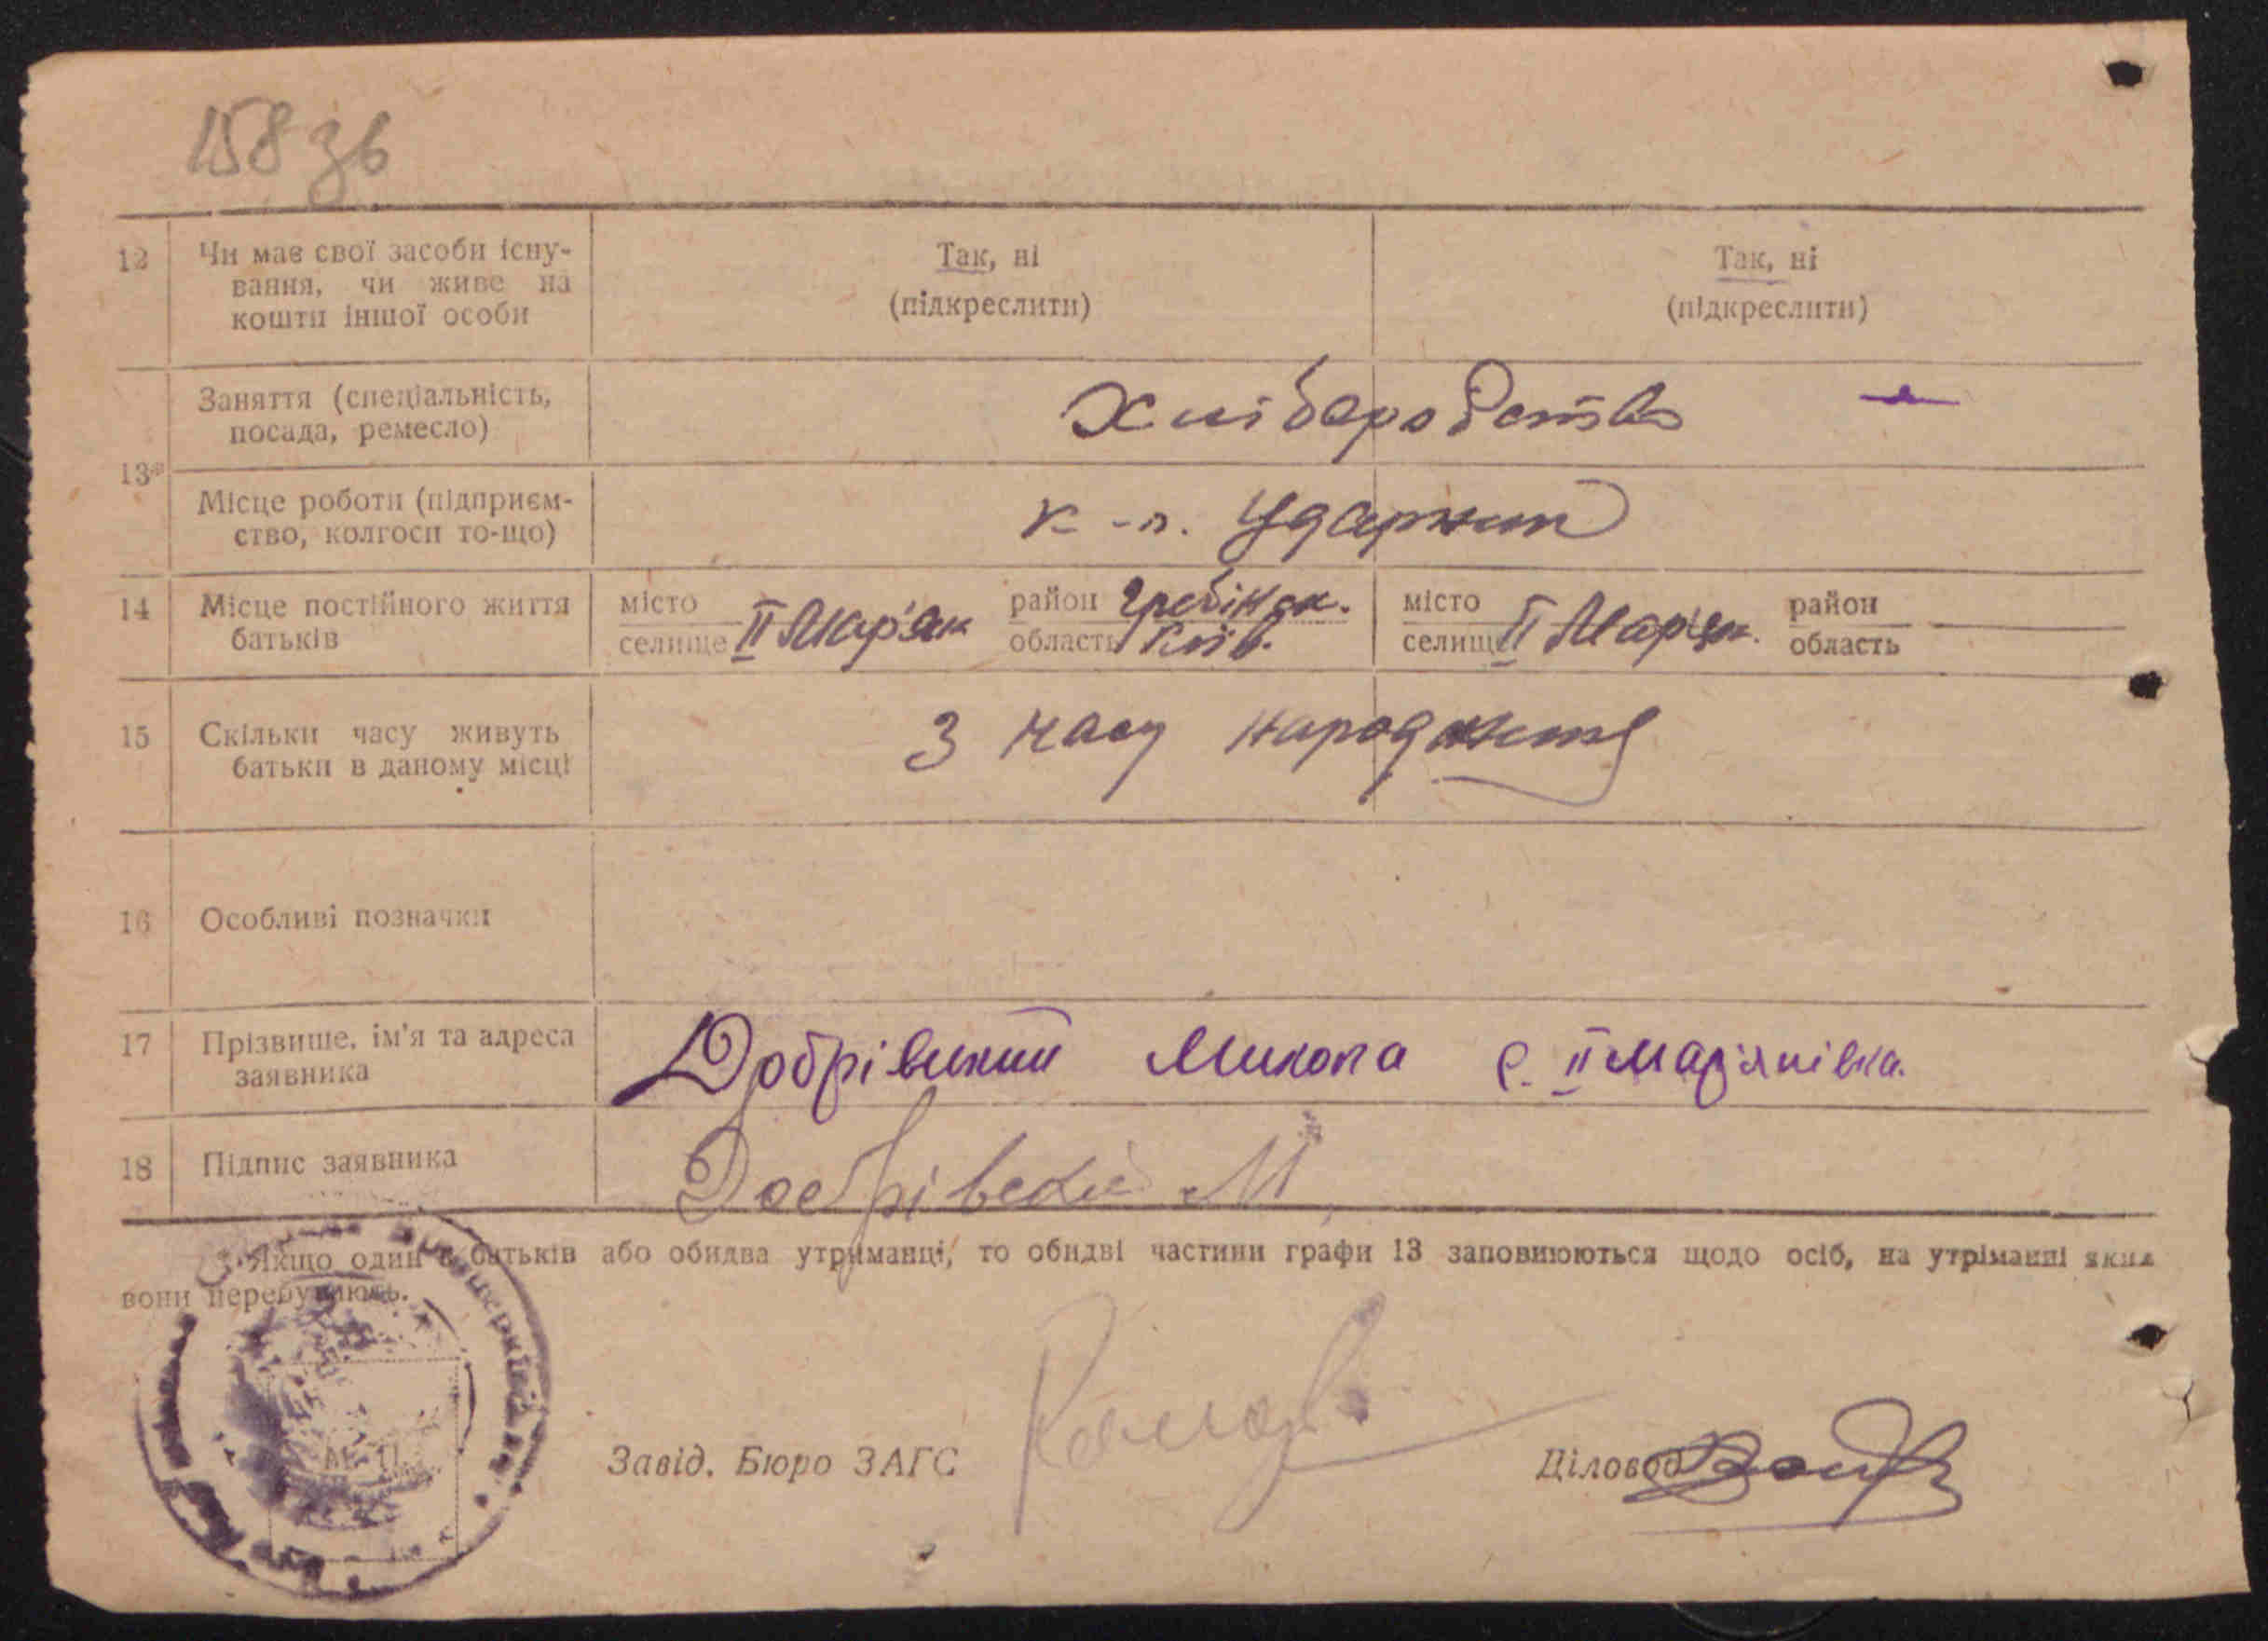 158 зв
12 Чи має свої засоби існу-
вання, чи живе на
кошти іншої особи
Так, ні
(підкреслити)
Так, ні
(підкреслити)
13*
Заняття (спеціальність,
посада, ремесло)
Хліборобство
Місце роботи (підприєм-
ство, колгосп то-що)
к-п. Ударник
14 Місце постійного життя
батьків
місто
селище ІІ Мар'ян
район Гребінок.
область Київ.
місто
селище ІІ Мар'ян.
район
область
15 Скільки часу живуть
батьки в даному місці
З часу народження
16 Особливі позначки
17 Прізвище, ім'я та адреса
заявника
Добрівський Микола с. ІІ Мар'янівка.
18 Підпис заявника
Добрівский М
* Якщо один з батьків або обидва утриманці, то обидві частини графи 13 заповнюються щодо осіб, на утріманні яких
вони перебувають.
Завід. Бюро ЗАГС
Діловод